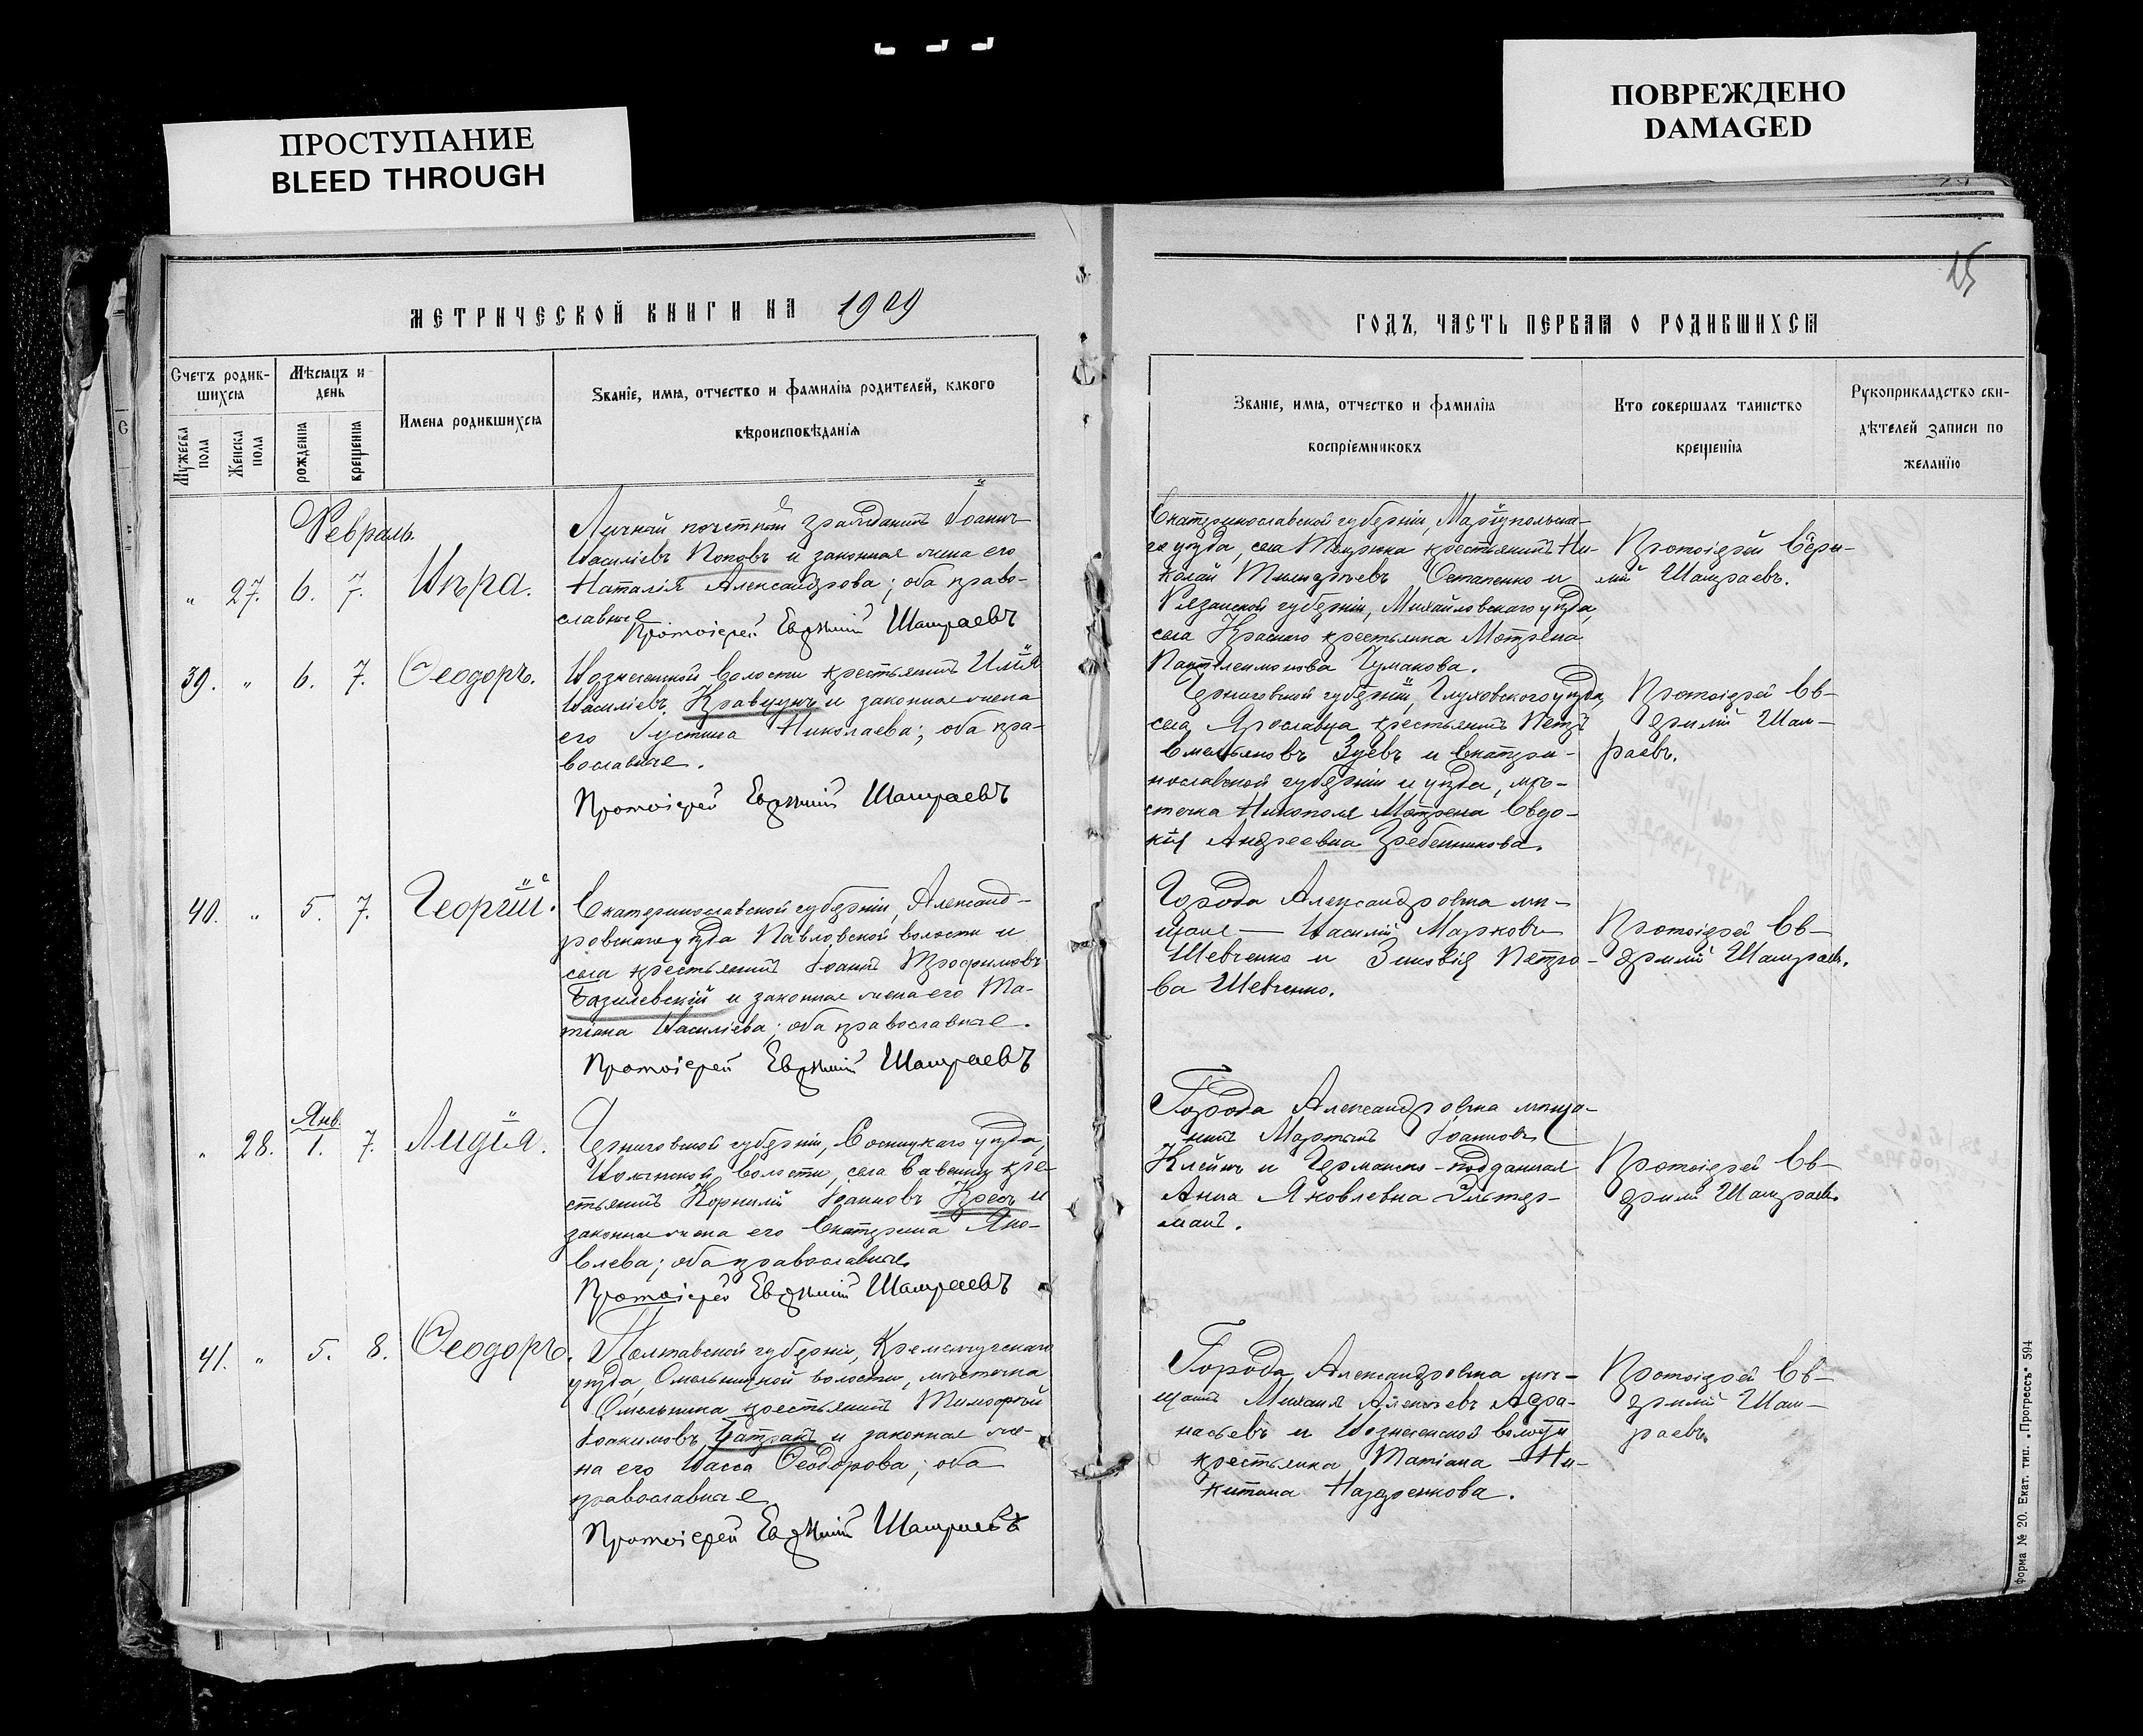 ПРОСТУПАНИЕ
BLEED THROUGH
ПОВРЕЖДЕНО
DAMAGED
15
МЕТРИЧЕСКОЙ КНИГИ НА 1909
ГОДЪ, ЧАСТЬ ПЕРВАЯ О РОДИВШИХСЯ
Счетъ родив-
шихся
Мѣсяцъ и
день
Мужеска
пола
Женска
пола
рожденія
крещенія
Имена родившихся
Званіе, имя, отчество и фамилія родителей, какого
вѣроисповѣданія
Званіе, имя, отчество и фамилія
воспріемниковъ
Кто совершалъ таинство
крещенія
Рукоприкладство сви-
дѣтелей записи по
желанію
Февраль.
" 27. 6. 7. Вѣра.
Личный почетный гражданинъ Іоаннъ
Василіевъ Поповъ и законная жена его
Наталія Александрова; оба право-
славные
Протоіерей Евѳимій Шамраевъ
Екатеринославской губерніи, Маріупольска-
го уѣзда, села Темрюка крестьянинъ Ни-
колай Остапенко и
Рязанской губерніи, Михайловскаго уѣзда,
села Краснаго крестьянка Мотрона
Пантелеимонова Чумакова.
Протоіерей Евѳи-
мій Шамраевъ.
39. " 6. 7. Ѳеодоръ.
Вознесенской волости крестьянинъ Илія
Василіевъ Кравцунъ и законная жена
его Іустина Николаева; оба пра-
вославные.
Протоіерей Евѳимій Шамраевъ
Черниговской губерніи, Глуховскаго уѣзда,
села Ярославца крестьянинъ Петръ
Емельяновъ Зуевъ и Екатери-
нославской губерніи и уѣзда, мѣ-
стечка Никополя Евдо-
кія Андреевна Гребенникова.
Протоіерей Ев-
ѳимій Шам-
раевъ.
40. " 5. 7. Георгій.
Екатеринославской губерніи, Александ-
ровскаго уѣзда Павловской волости и
села крестьянинъ Іоаннъ Трофимовъ
Базилевскій и законная жена его Та-
тіана Василіева; оба православные.
Протоіерей Евѳимій Шамраевъ
Города Александровска мѣ-
щане — Василій Марковъ
Шевченко и Зиновія Петро-
ва Шевченко.
Протоіерей Ев-
ѳимій Шамраевъ.
Янв.
" 28. 1. 7. Лидія.
Черниговской губерніи, Сосницкаго уѣзда,
Волынской волости, села Савенки кре-
стьянинъ Корнилій Іоанновъ Кресъ и
законная жена его Екатерина Яко-
влева; оба православные.
Протоіерей Евѳимій Шамраевъ
Города Александровска мѣща-
нинъ Мартинъ Іоанновъ
Клейнъ и Германско-подданная
Анна Яковлевна Эльтер-
манъ.
Протоіерей Ев-
ѳимій Шамраевъ.
41. " 5. 8. Ѳеодоръ.
Полтавской губерніи, Кременчугскаго
уѣзда, Омельницкой волости, мѣстечка
Омельника крестьянинъ Тимофей
Іоакимовъ и законная же-
на его Васса Ѳеодорова; оба
православные
Протоіерей Евѳимій Шамраевъ
Города Александровска мѣ-
щанинъ Михаилъ Алексѣевъ Афа-
насьевъ и Вознесенской волости
крестьянка Татіана Ни-
китина Назаренкова.
Протоіерей Ев-
ѳимій Шам-
раевъ.
форма № 20. Екат. тип. „Прогрессъ" 594